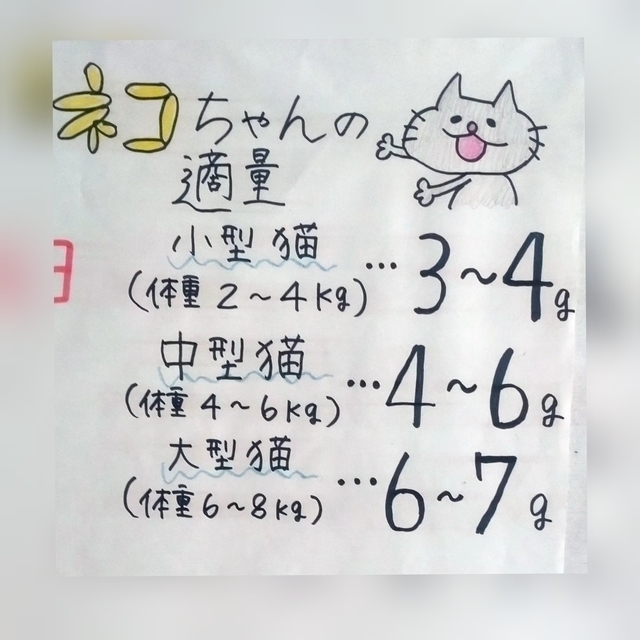 ネコちゃんの
適量
小型猫
(体重2~4kg)
…3~4g
中型猫
(体重4~6kg)
…4~6g
大型猫
(体重6~8kg)
…6~7g